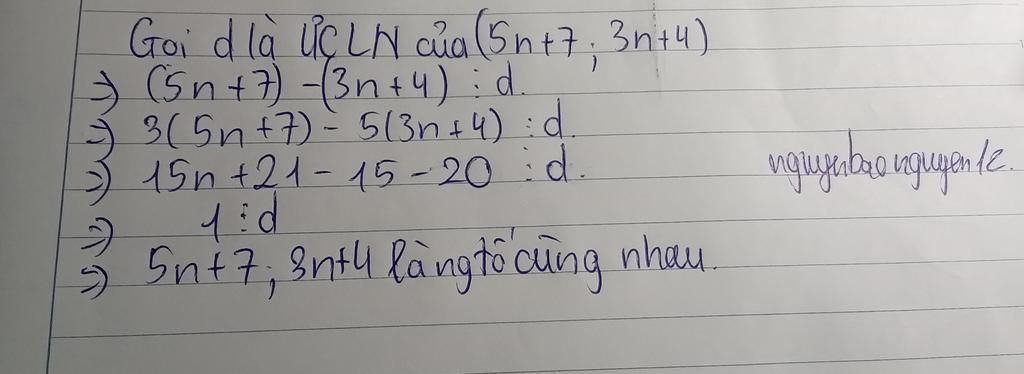 Gọi d là ƯCLN của (5n+7; 3n+4)
⇒ (5n+7) - (3n+4) ⋮ d.
⇒ 3(5n+7) - 5(3n+4) ⋮ d.
⇒ 15n+21 - 15 - 20 ⋮ d.
nguyenbaonguyen1c.
⇒ 1 ⋮ d
⇒ 5n+7; 3n+4 là ngtố cùng nhau.